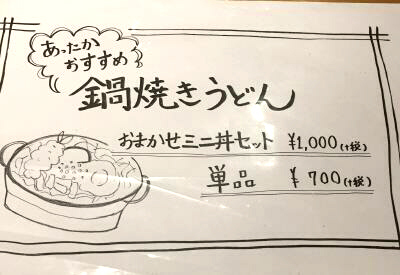 あったか
おすすめ
鍋焼きうどん
おまかせミニ丼セット ¥1,000(+税)
単品 ¥700(+税)